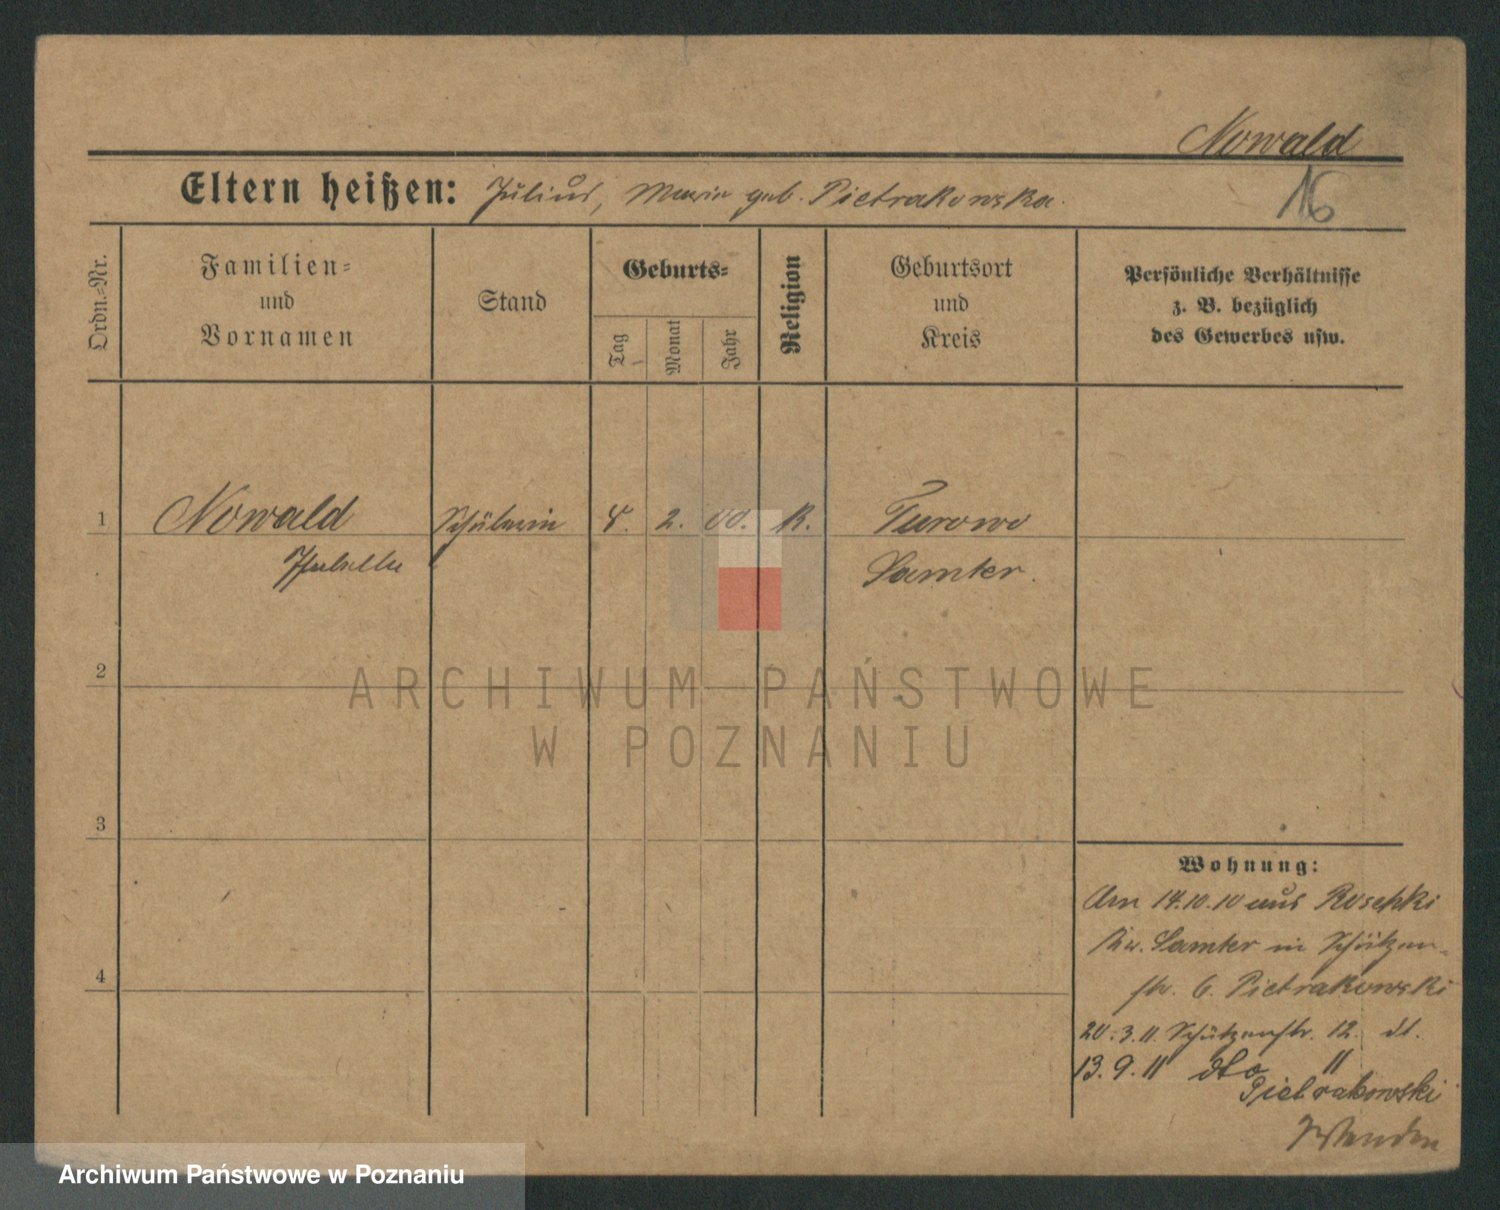 Nowald
Eltern heißen: Julius, Maria geb. Pietrakowska.
16
Ordn.-Nr.
Familien-
und
Vornamen
Stand
Geburts-
Tag
Monat
Jahr
Religion
Geburtsort
und
Kreis
Persönliche Verhältnisse
z. B. bezüglich
des Gewerbes usw.
1 Nowald Schülerin 2. 00. K. Turowo
Isabella Samter.
2
ARCHIWUM PAŃSTWOWE
W POZNANIU
3
4
Wohnung:
Am 14.10.10 aus Roschki
Kr. Samter in Schützen-
str. 6. Pietrakowski
20.3.11 Schützenstr. 12. dt.
13.9.11 dto "
Pietrakowski
Archiwum Państwowe w Poznaniu